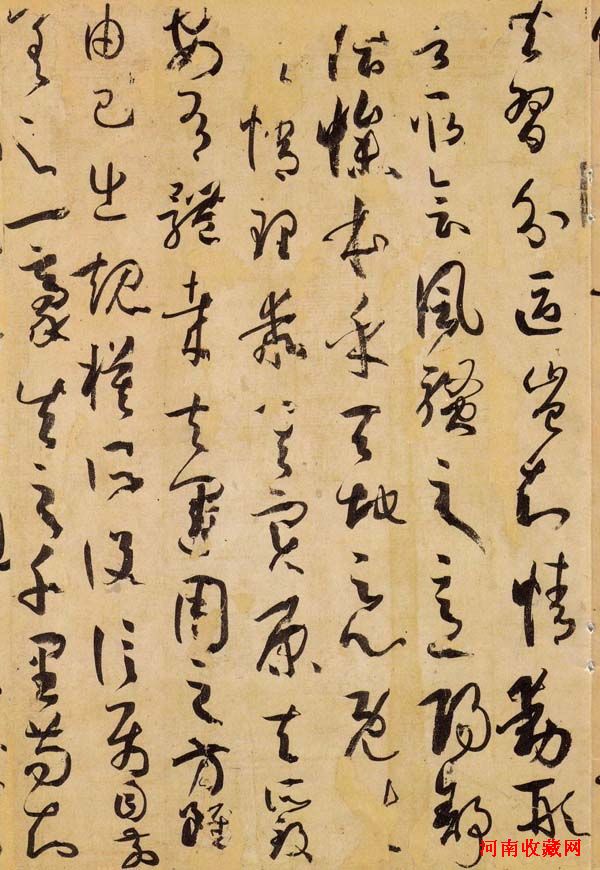 共習分區豈知情動形
言取會風騷之意陽舒
陰慘本乎天地之心既失
其情理乖其實原夫所致
安有體哉夫運用之方雖
由己出規模所設信屬目前
差之一豪失之千里苟知
河南收藏网